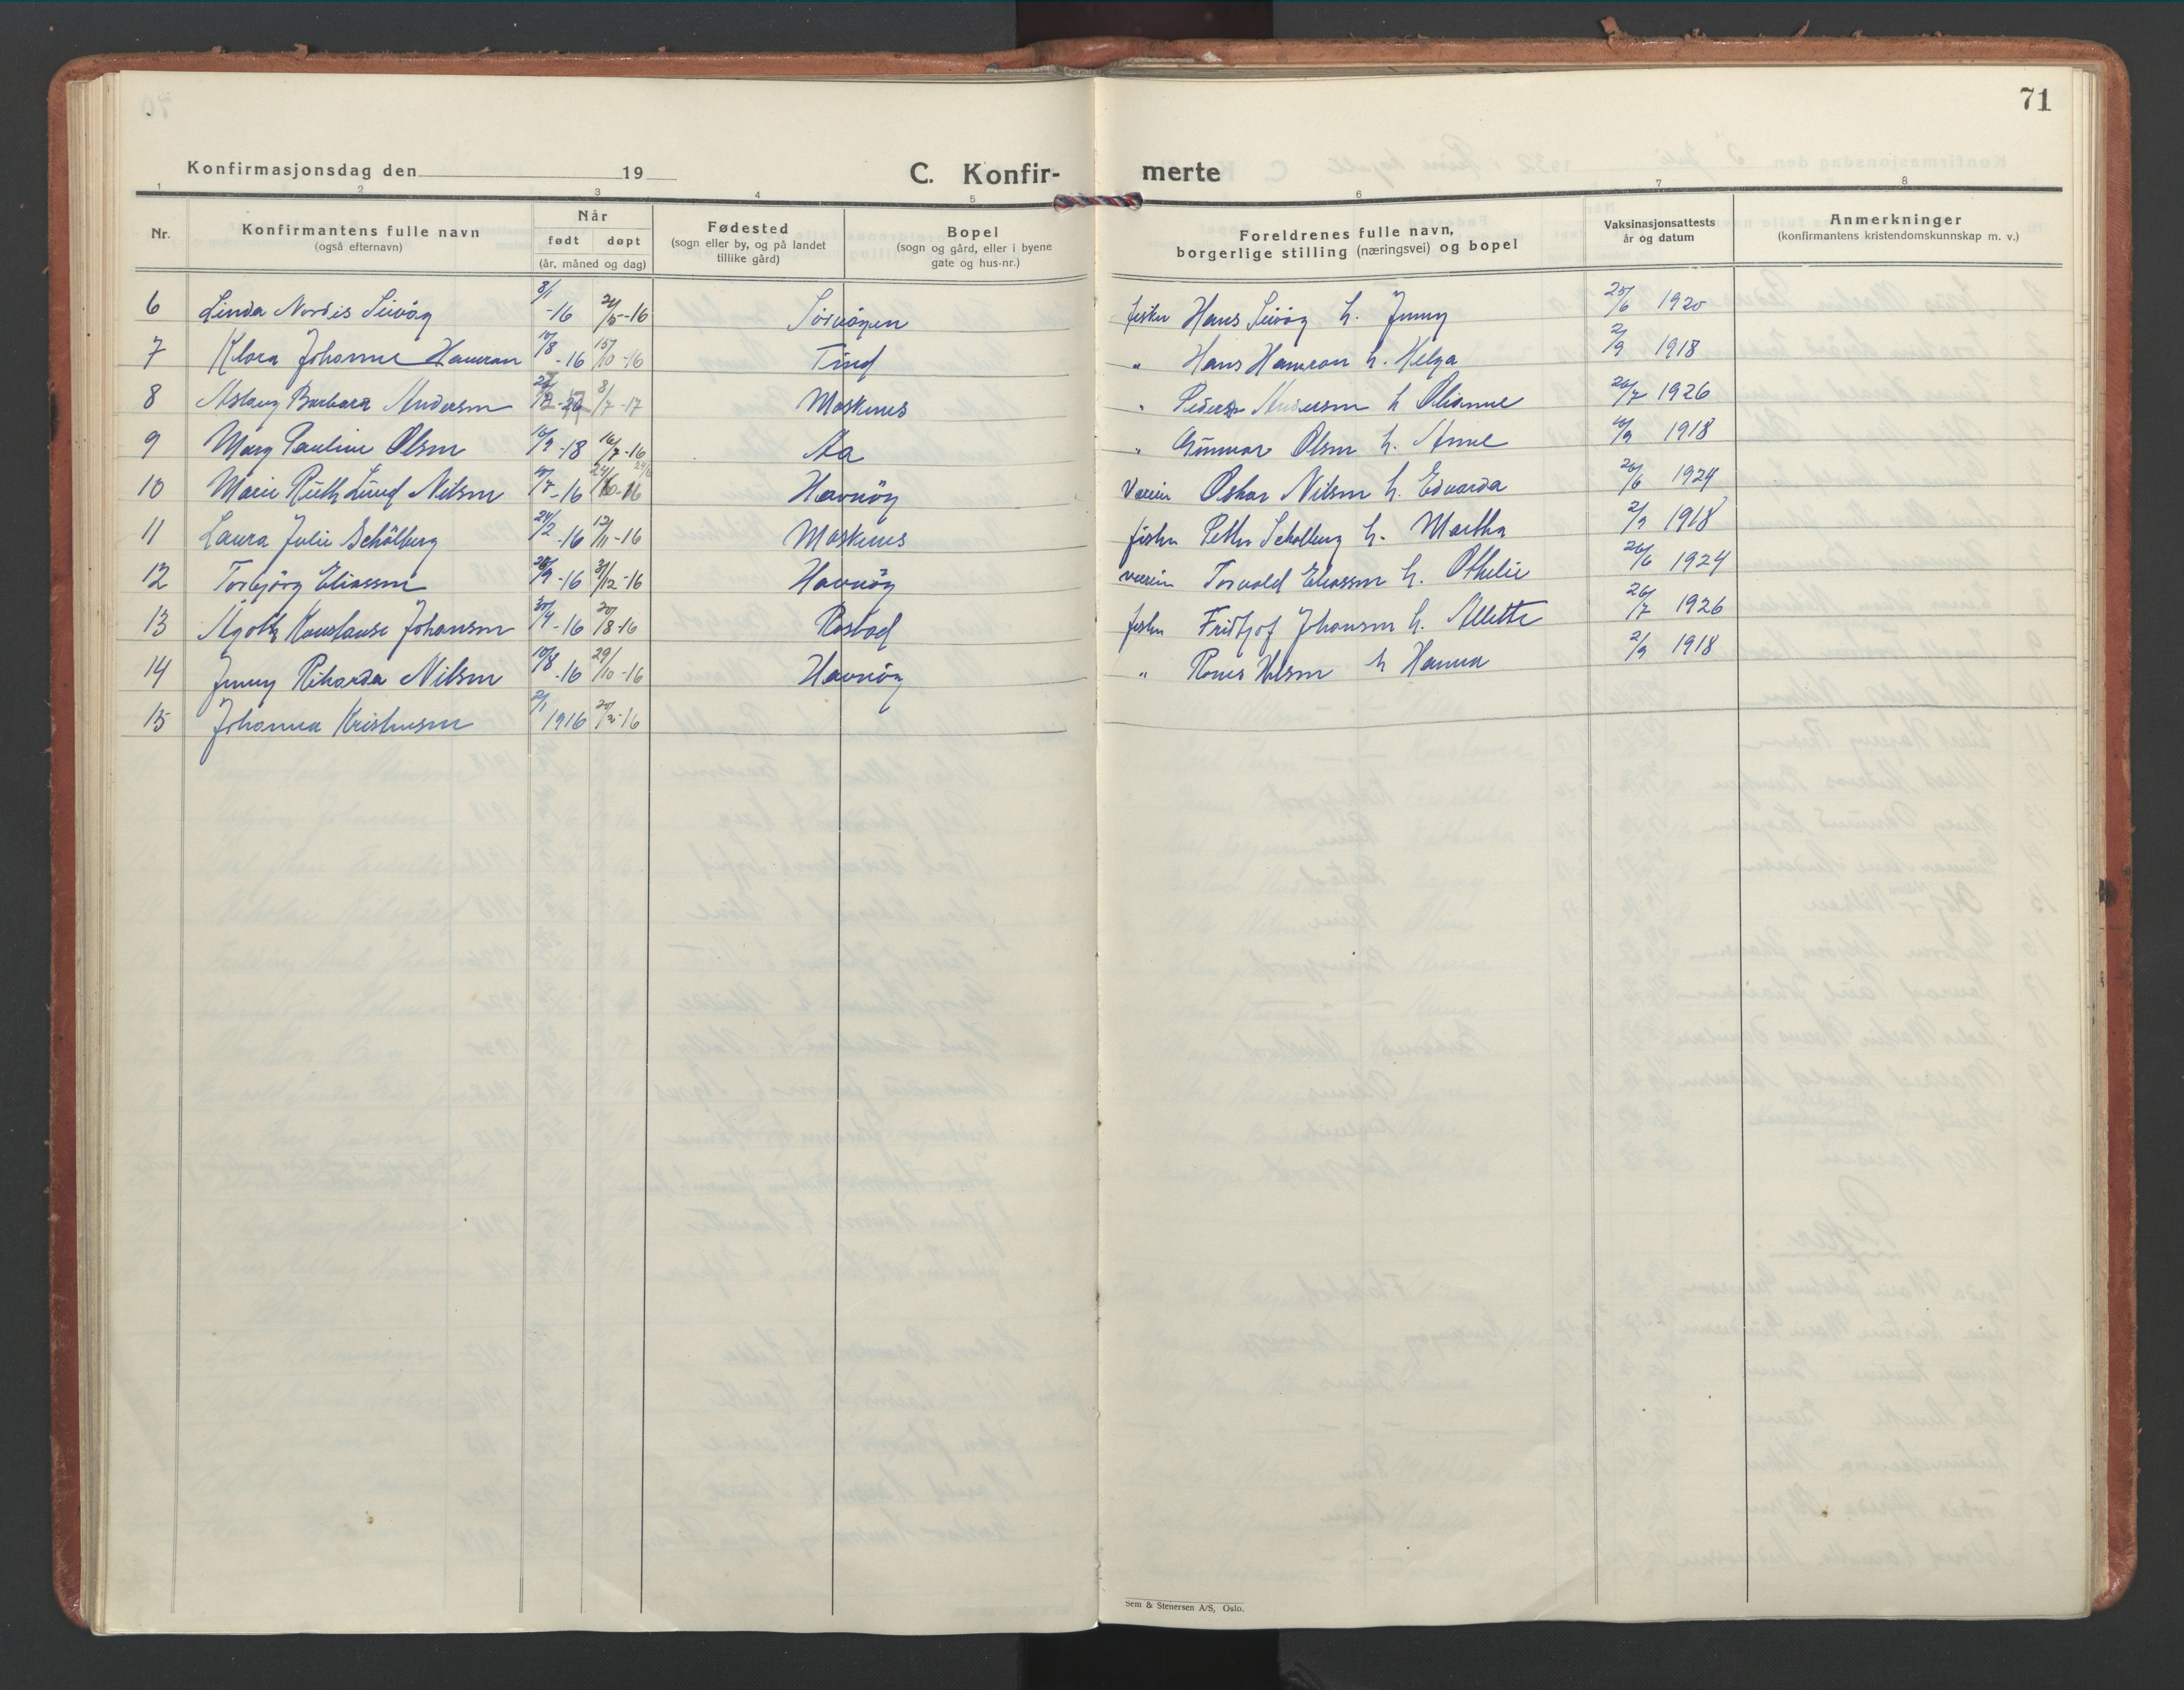 71
Konfirmasjonsdag den 19
C. Konfir-
merte
1 2 3 4 5 6 7 8
Nr. Konfirmantens fulle navn (også efternavn) Når født døpt (år, måned og dag) Fødested (sogn eller by, og på landet tillike gård) Bopel (sogn og gård, eller i byene gate og hus-nr.) Foreldrenes fulle navn, borgerlige stilling (næringsvei) og bopel Vaksinasjonsattests år og datum Anmerkninger (konfirmantens kristendomskunnskap m. v.)
6 Linda Nordis Seivåg 3/1 -16 21/5-16 Sørvågen fisker Hans Seivåg h. Jenny 25/6 1920
7 Klara Johanne Hamran 10/8 -16 15/10 -16 Tind " Hans Hamran h. Helga 2/9 1918
8 Aslaug Barbara Andersen 8/7 -17 Moskenes " Peder Andersen h Olianne 26/7 1926
9 Mary Pauline Olsen -18 16/7 -16 Aa " Gunnar Olsen h. Anne 1918
10 Marie Ruth Lund Nilsen -16 Havnøy Oskar Nilsen h. Edvarda 26/6 1924
11 Laura Julie Schölberg 24/2 -16 12/11 -16 Moskenes fisker Petter Schölberg h. Martha 2/9 1918
12 Torbjørg Eliassen -16 31/12 -16 Havnøy Torvald Eliassen h. Othelie 26/6 1924
13 Agoth Konstanse Johansen -16 20/8 -16 Rostad fisker Fridtjof Johansen h. Allette 26/7 1926
14 Jenny Rikarda Nilsen 10/8 -16 29/10 -16 Havnøy " Nilsen h Hanna 2/9 1918
15 Johanna Kristensen 2/1 1916 -16
Sem & Stenersen A/S, Oslo.